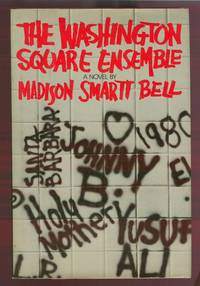 THE WASHINGTON
SQUARE ENSEMBLE
A NOVEL BY
MADISON SMARTT BELL
SANTA
BARBARA
♡ 1980
JOHNNY
B.
EL
Holy
Mother
YUSUF
ALI
L.R.